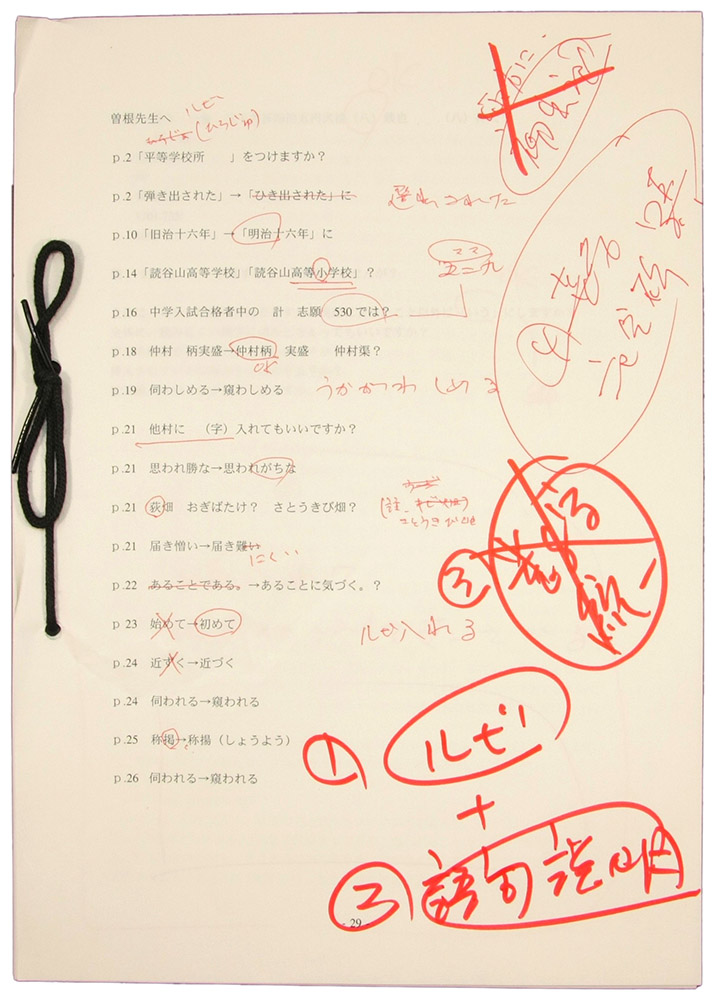 曽根先生へ ルビ
(ひらじゅ)
p.2「平等学校所　　」をつけますか？
p.2「弾き出された」→「ひき出された」に 選出された
p.10「旧治十六年」→「明治十六年」に
p.14「読谷山高等学校」「読谷山高等小学校」？
ママ
五二九
p.16　中学入試合格者中の　計　志願　530では？
p.18　仲村　柄実盛→仲村柄　実盛　　仲村渠？
OK
p.19　伺わしめる→窺わしめる うかがわしめる
p.21　他村に　（字）入れてもいいですか？
p.21　思われ勝な→思われがちな
p.21　荻畑　おぎばたけ？　さとうきび畑？
p.21　届き憎い→届き難い
にくい
p.22　あることである。→あることに気づく。？
p.23　始めて→初めて ルビ入れる
p.24　近ずく→近づく
p.24　伺われる→窺われる
p.25　称掲→称揚（しょうよう）
p.26　伺われる→窺われる
① ルビ
+
② 語句説明
- 29
③
④